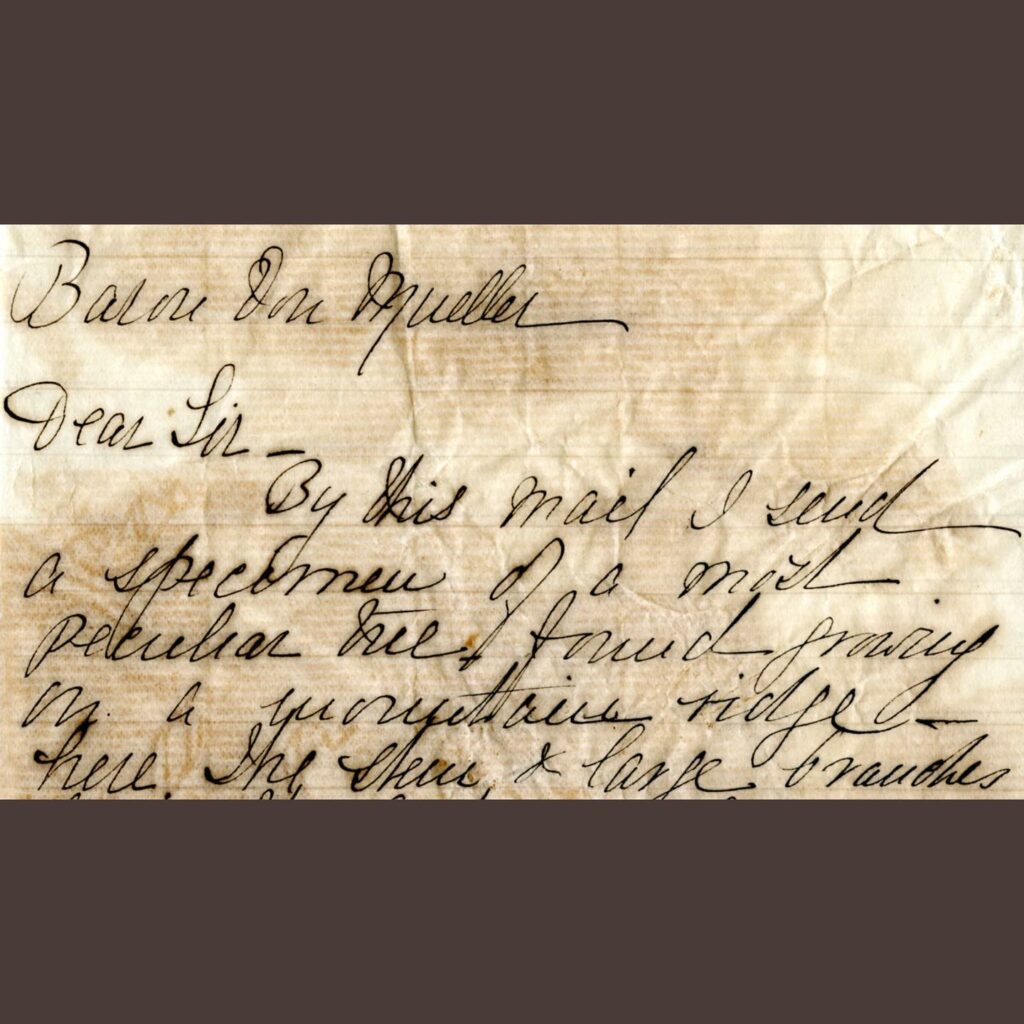 Baron Von Mueller
Dear Sir –
By this mail I send
a specimen of a most
peculiar tree I found growing
on a mountain ridge –
here. The stem & large branches